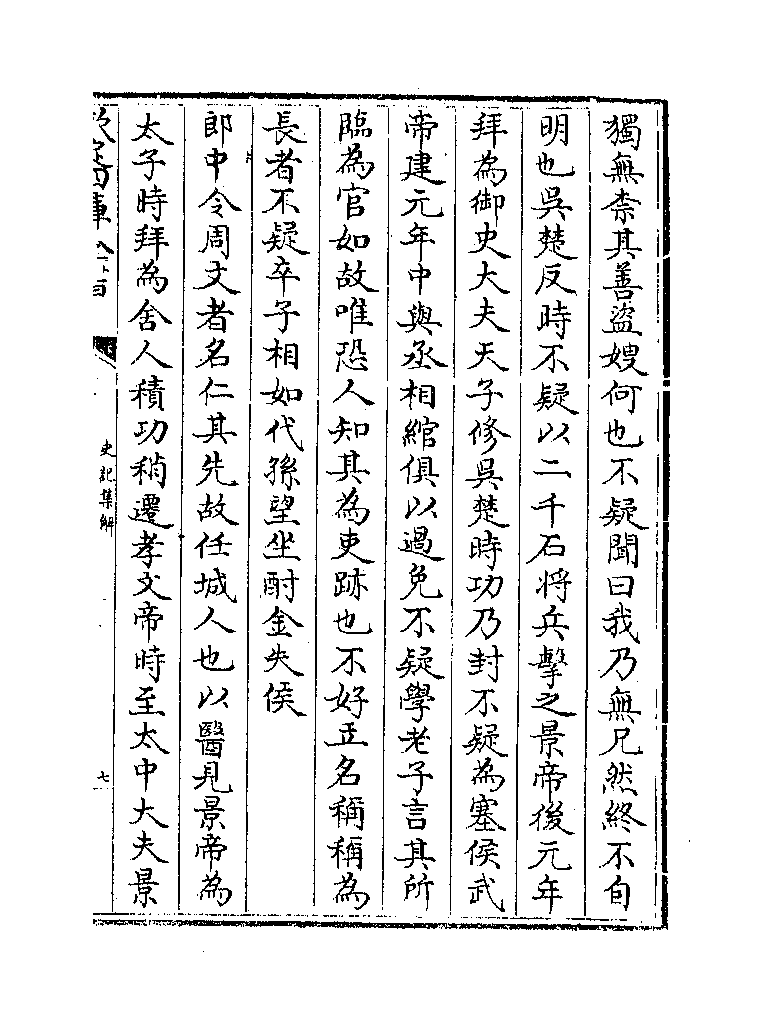 獨無柰其善盜嫂何也不疑聞曰我乃無兄然終不自
明也吳楚反時不疑以二千石将兵擊之景帝後元年
拜為御史大夫天子修吳楚時功乃封不疑為塞侯武
帝建元年中與丞相綰俱以過免不疑學老子言其所
臨為官如故唯恐人知其為吏跡也不好立名稱稱為
長者不疑卒子相如代孫望坐酎金失侯
郎中令周文者名仁其先故任城人也以醫見景帝為
太子時拜為舍人積功稍遷孝文帝時至太中大夫景
史記集解
七